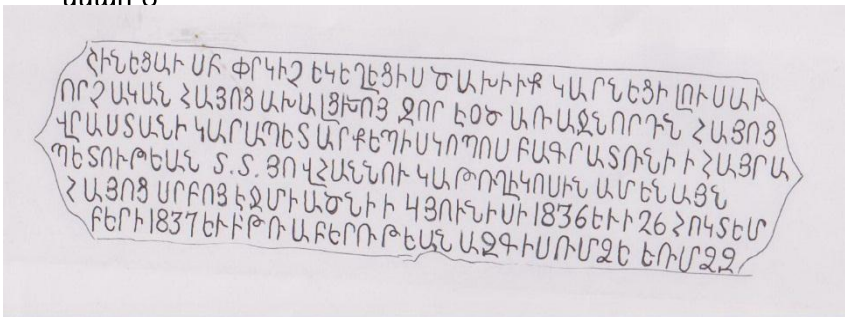 ՇԻՆԵՑԱՒ ՍԲ ՓՐԿԻՉ ԵԿԵՂԵՑԻՍ ԾԱԽԻՒՔ ԿԱՐՆԵՑԻ ԼՈՒՍԱՒ
ՈՐՉԱԿԱՆ ՀԱՅՈՑ ԱԽԱԼՑԽՈՅ ԶՈՐ ԷՕԾ ԱՌԱՋՆՈՐԴՆ ՀԱՅՈՑ
ՎՐԱՍՏԱՆԻ ԿԱՐԱՊԵՏ ԱՐՔԵՊԻՍԿՈՊՈՍ ԲԱԳՐԱՏՈՒՆԻ Ի ՀԱՅՐԱ
ՊԵՏՈՒԹԵԱՆ Տ.Տ. ՅՈՎՀԱՆՆՈՒ ԿԱԹՈՂԻԿՈՍԻՆ ԱՄԵՆԱՅՆ
ՀԱՅՈՑ ՍՐԲՈՅ ԷՋՄԻԱԾՆԻ Ի 4 ՅՈՒՆԻՍԻ 1836 ԵՒ Ի 26 ՀՈԿՏԵՄ
ԲԵՐԻ 1837 ԵՒ Ի ԹՌԱԲԵՐՈՒԹԵԱՆ ԱԶԳԻՍ ՌՄՁԵ ԵՌՄՁԶ